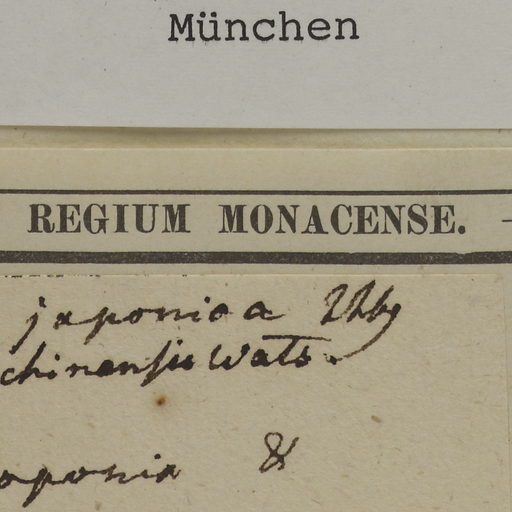 München
REGIUM MONACENSE.
japonica
chinensis Wats.
aponia &